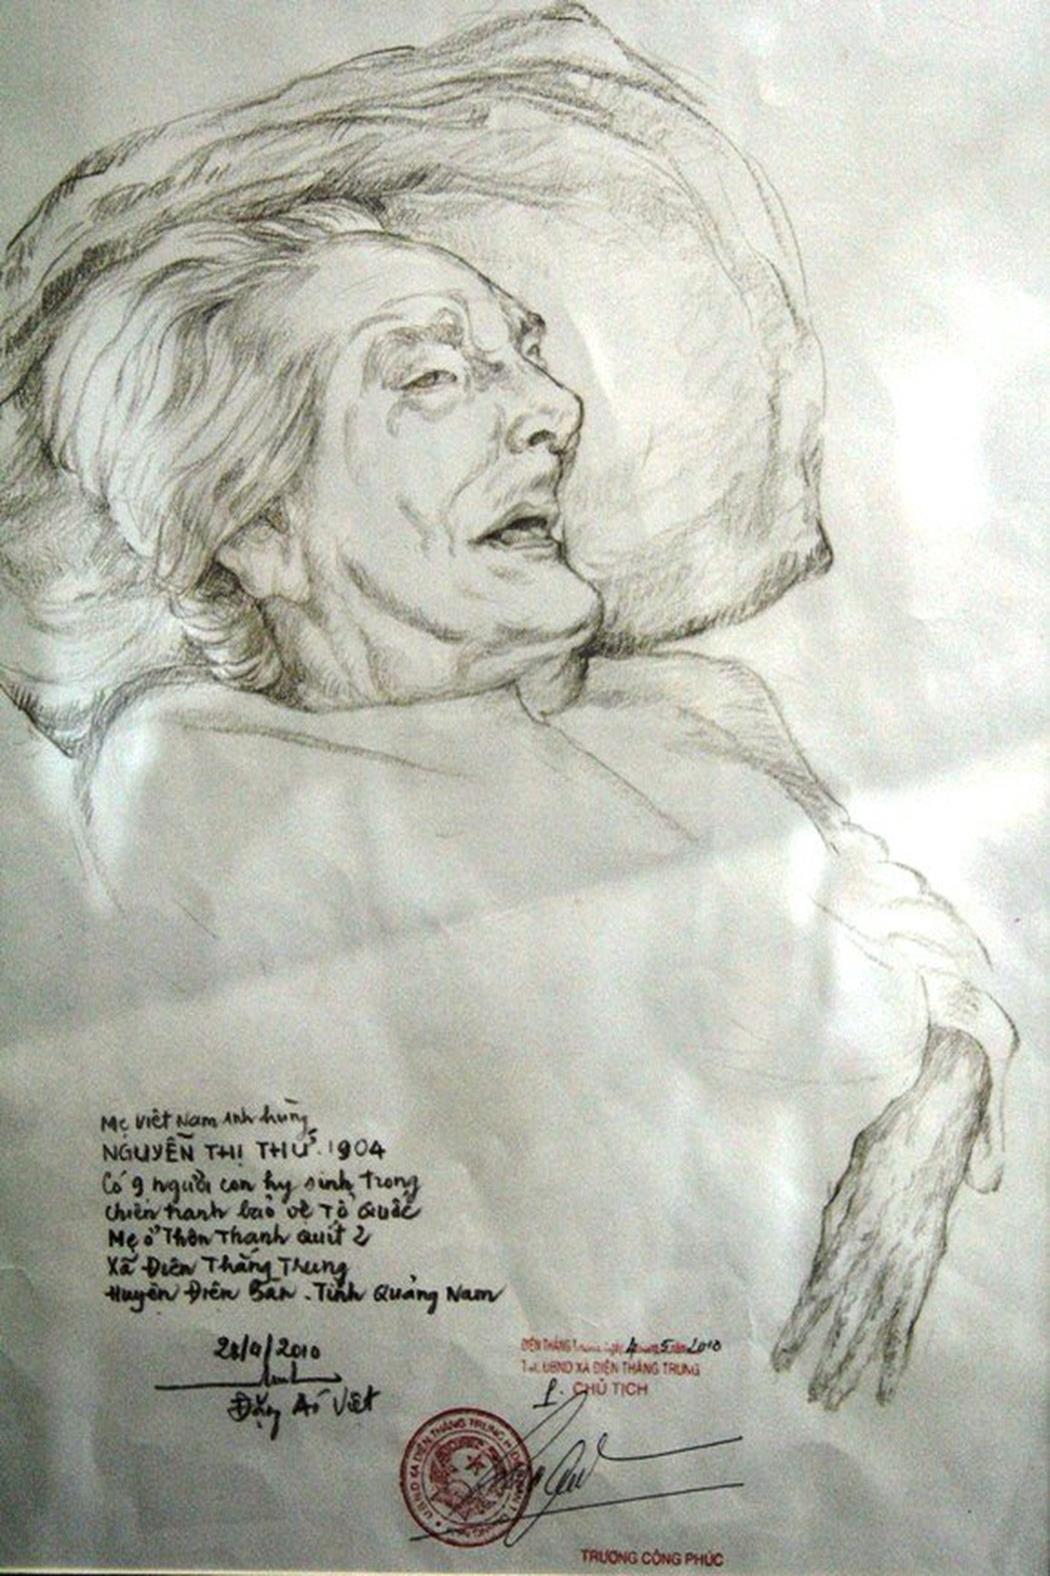 Mẹ Việt Nam Anh hùng
NGUYỄN THỊ THỨ. 1904
Có 9 người con hy sinh trong
chiến tranh bảo vệ Tổ Quốc
Mẹ ở Thôn Thanh Quít 2
Xã Điện Thắng Trung
Huyện Điện Bàn. Tỉnh Quảng Nam
28/4/2010
Đặng Ái Việt
ĐIỆN THẮNG Trung ngày 4 tháng 5 năm 2010
UBND XÃ ĐIỆN THẮNG TRUNG
CHỦ TỊCH
U.B.N.D XÃ ĐIỆN THẮNG TRUNG
TRƯƠNG CÔNG PHÚC